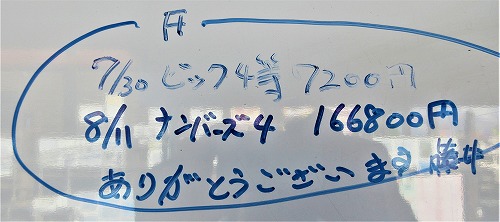 7/30 ビック4等 7200円
8/11 ナンバーズ4 166800円
ありがとうございます 藤井